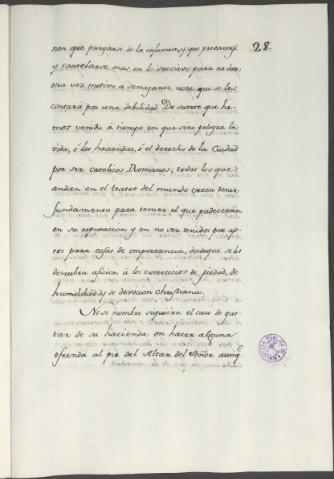 28.
nen que purgarse de la infamia, y que precaverse
y cautelarse mas en lo succesivo para no dar
otra vez motivo a semejante nota que se les
contará por una debilidad. De suerte que he-
mos venido á tiempo en que sino peligra la
vida, ó las haciendas, ó el derecho de la Ciudad
por ser catolicos Romanos; todos los que
andan en el teatro del mundo creen tener
fundamento para temer el que padecerán
en su reputacion y en no ser tenidos por ap-
tos para cosas de importancia, desde que se les
descubra aficion á los exercicios de piedad, de
humildad, y de devocion christiana.
No se nombre siquiera el caso de gas-
tar de su hacienda en hacer alguna
ofrenda al pie del Altar del Señor aunq.